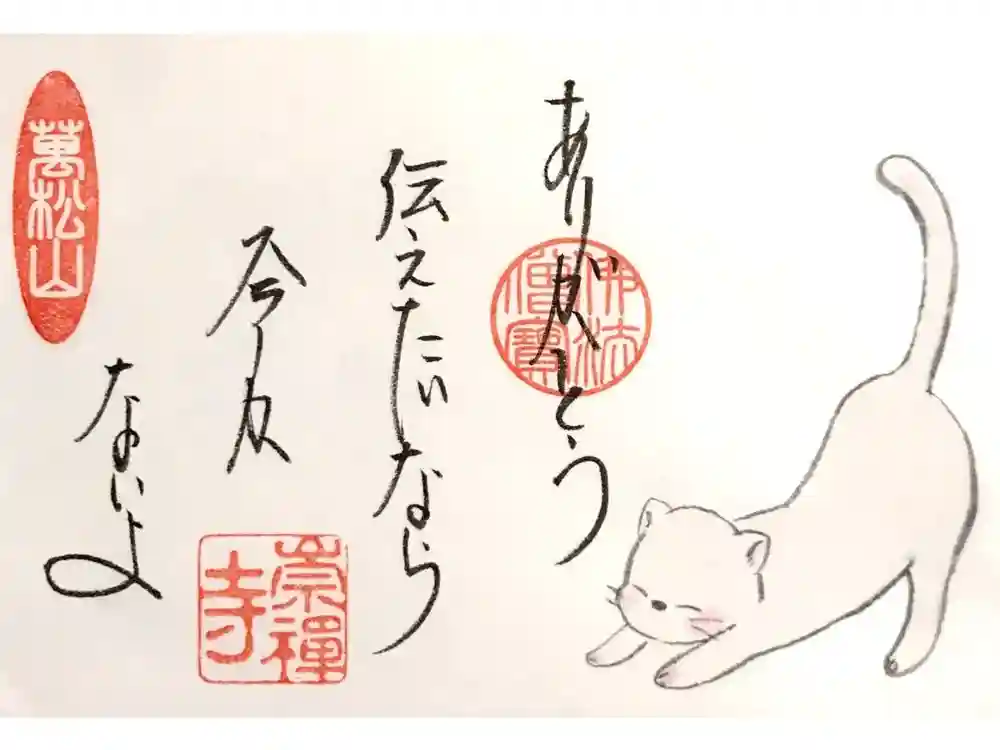 ありがとう
佛法
僧寶
伝えたいなら
今しか
ないよ
崇禪
寺
萬松山